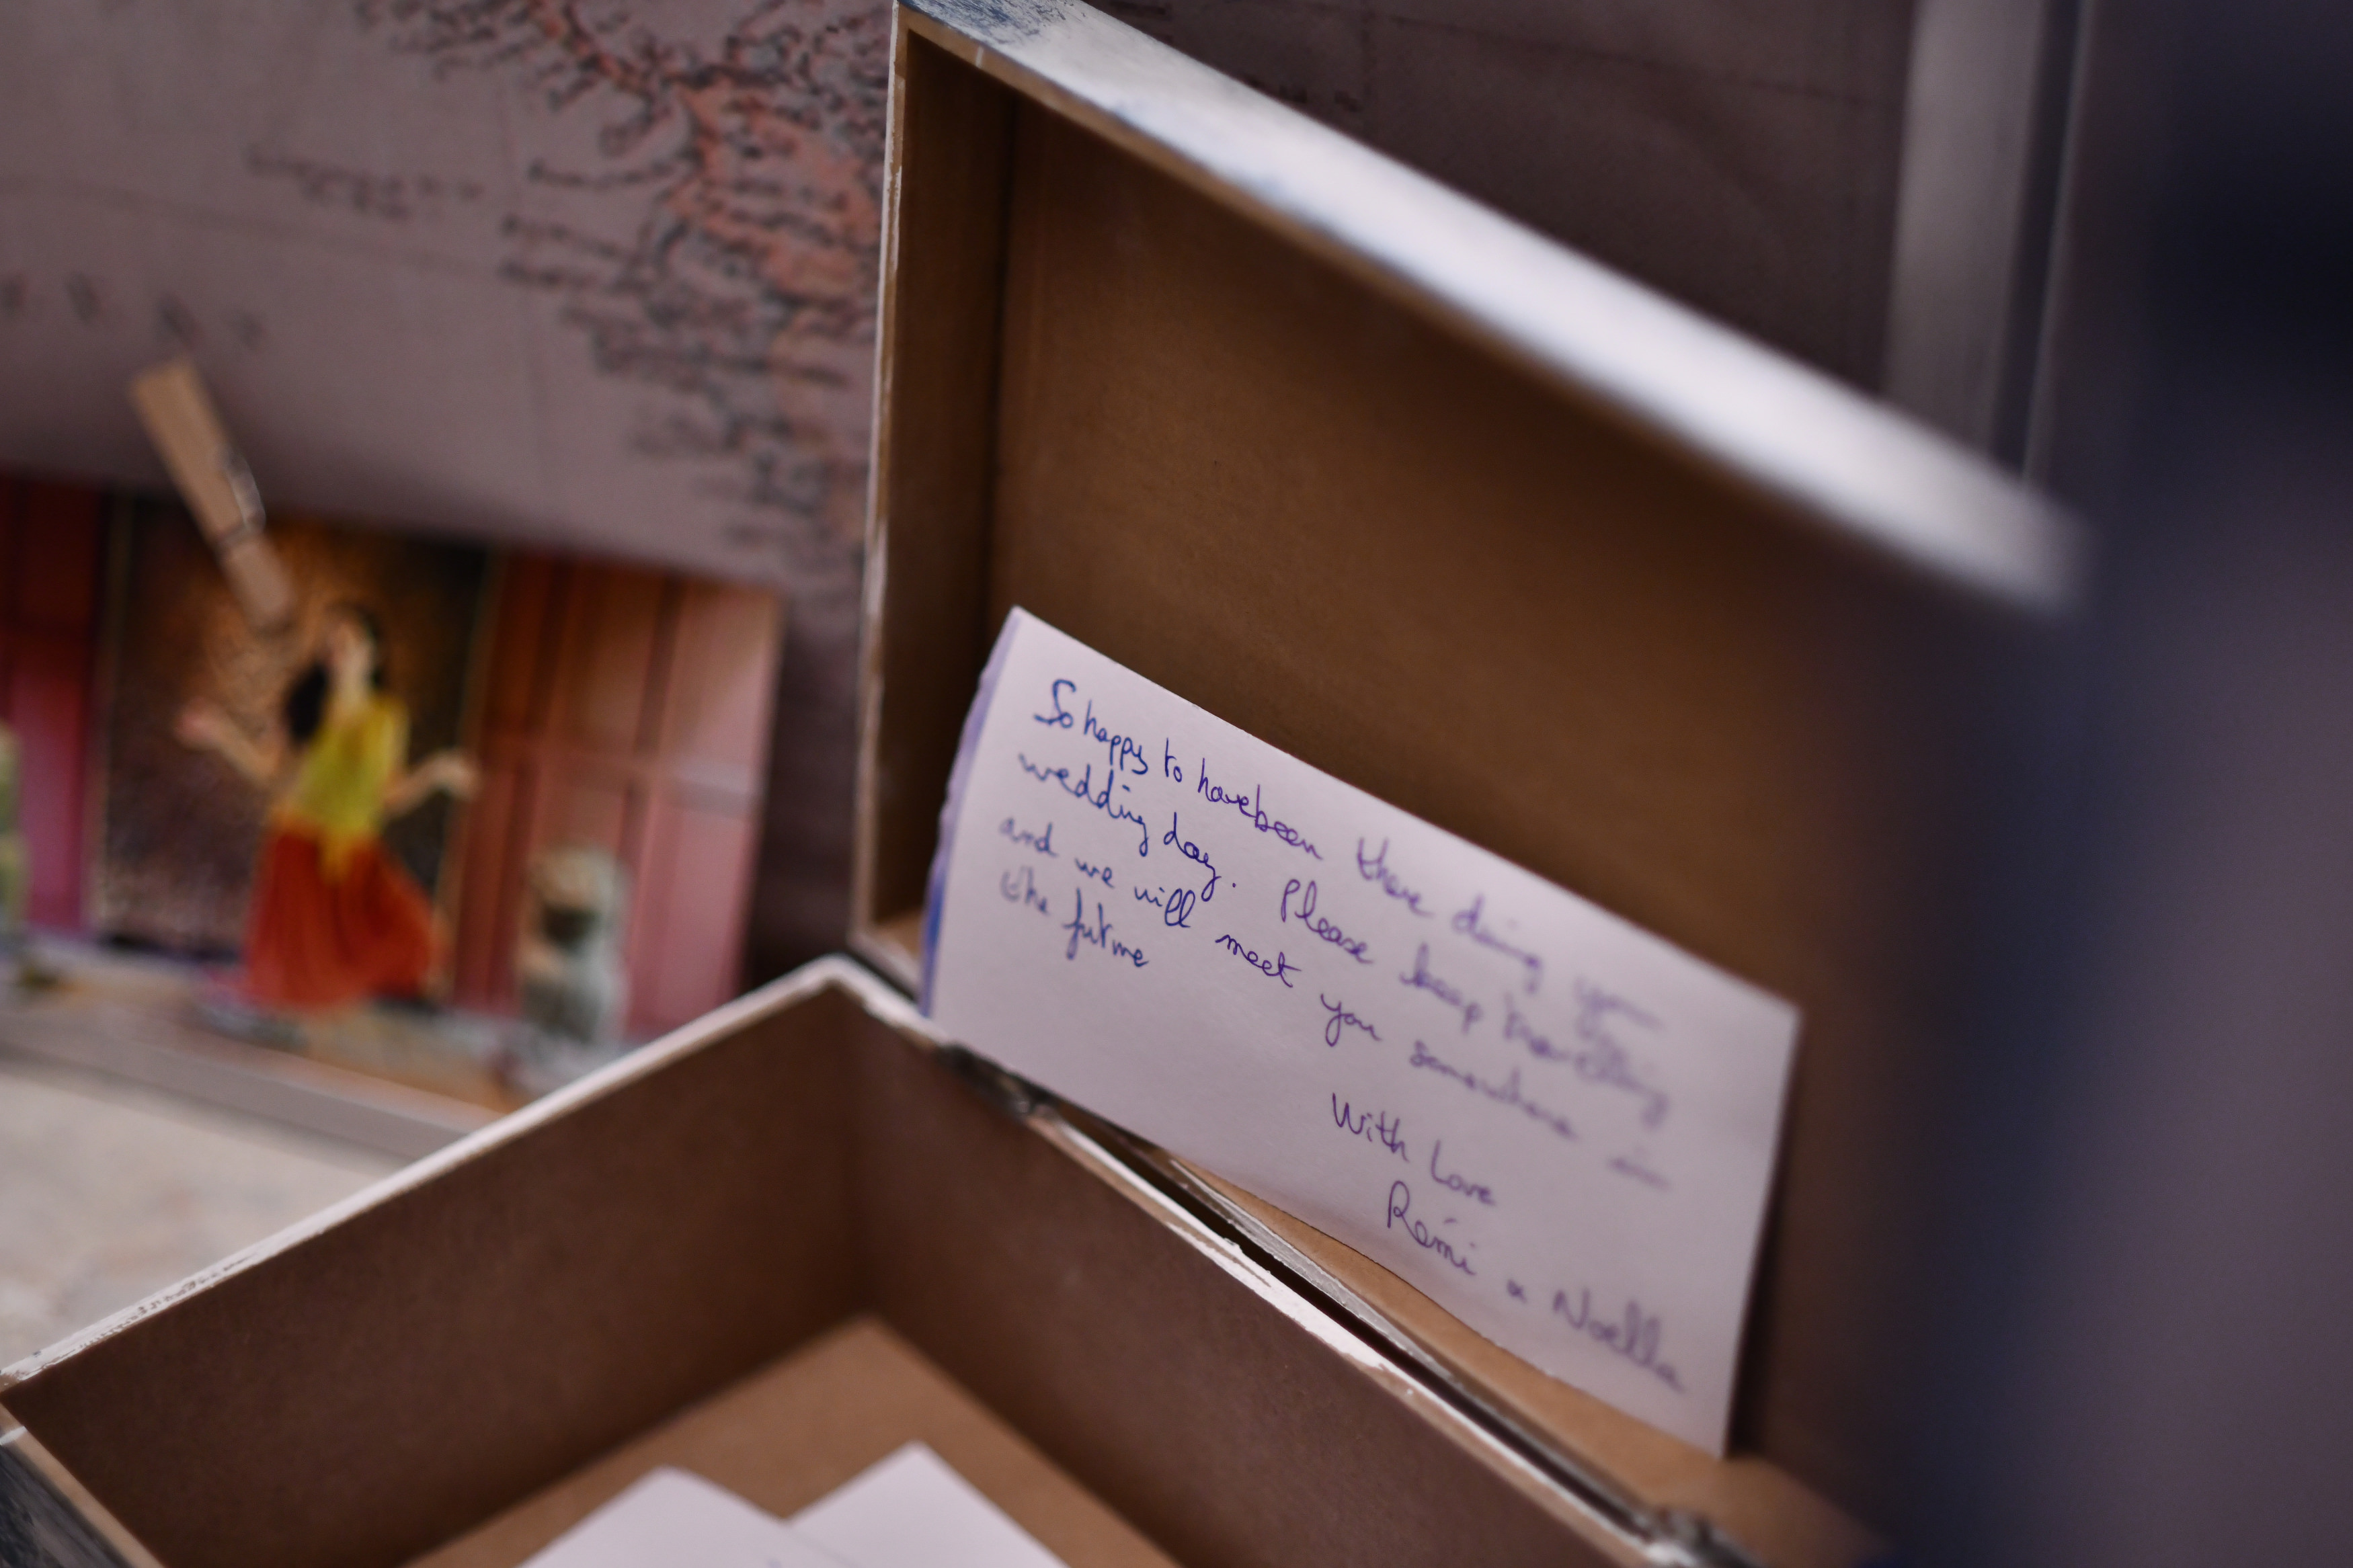 So happy to have been there duing you
wedding day. Please keep travelling
and we will meet you somewhere in
the future
With Love
Rémi & Noella